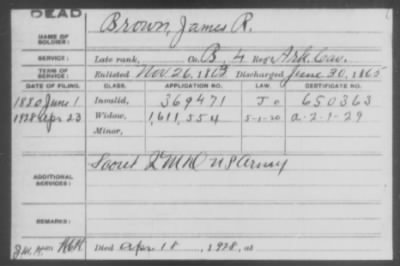 DEAD
NAME OF SOLDIER: Brown, James R.
SERVICE: Late rank, Co. B, 4 Reg't Ark. Cav.
TERM OF SERVICE: Enlisted Nov. 26, 1863 Discharged June 30, 1865
DATE OF FILING. CLASS. APPLICATION NO. LAW. CERTIFICATE NO.
1880 June 1 Invalid, 369471 650363
1928 Apr 23 Widow, 1,611,554 5-1-20 a-2-1-29
Minor,
ADDITIONAL SERVICES: US Army
REMARKS:
Died Apr 18, 1928, at